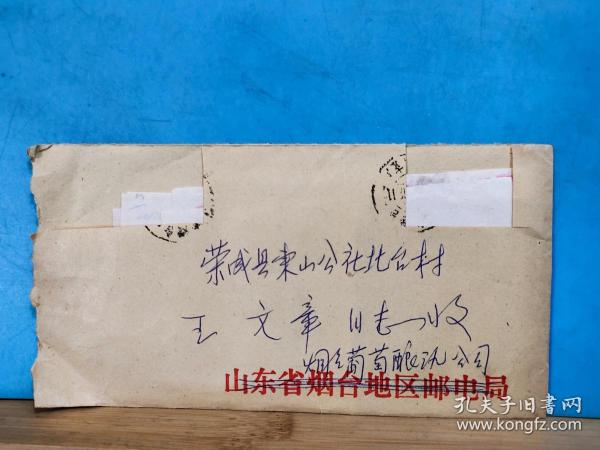 荣成县东山公社北台村
王文章同志收
烟台葡萄酿酒公司
山东省烟台地区邮电局
孔夫子旧书网
www.kongfz.com